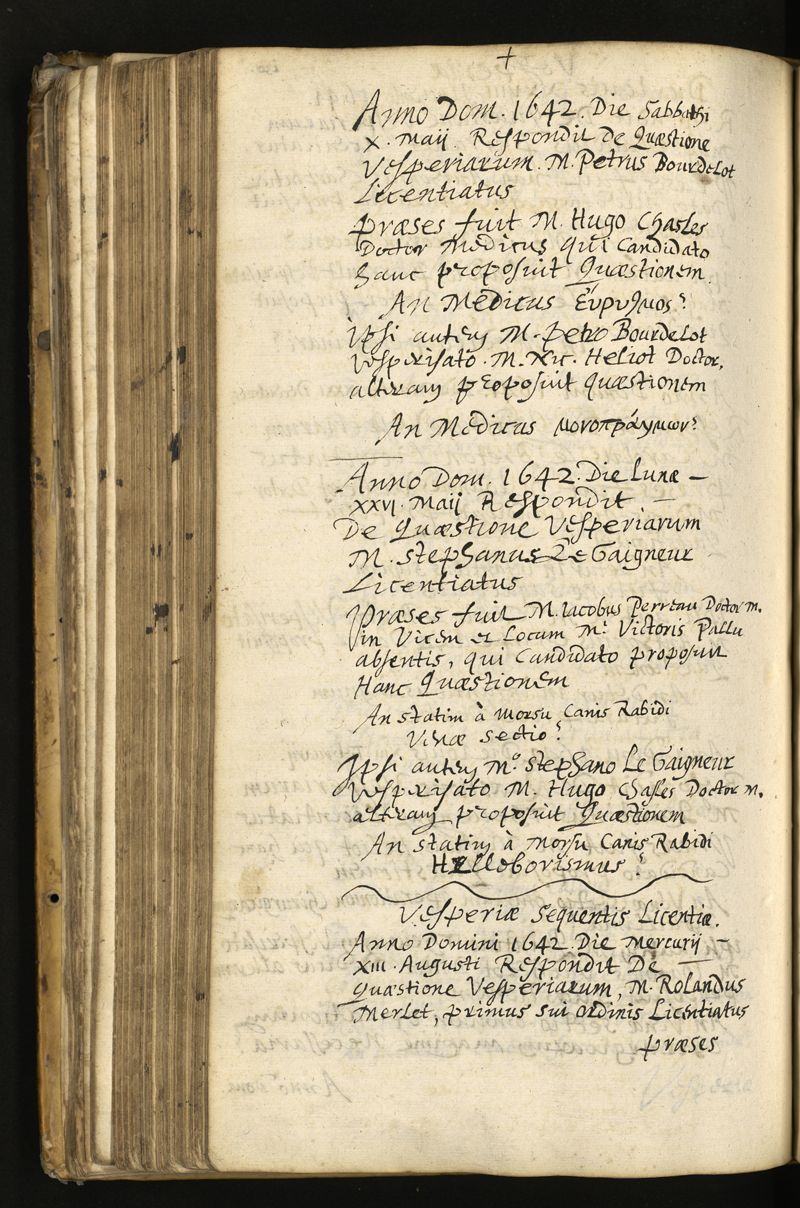 +
Anno Dom. 1642. Die Sabbathi
X. Maij Respondit De Quæstione
Vesperiarum. M. Petrus Bourdelot
Licentiatus
Præses fuit M. Hugo Chasles
Doctor Medicus qui Candidato
hanc proposuit Quæstionem.
An Medicus Εύρυλμος?
Ipsi autem M. Petro Bourdelot
Vesperisato. M. Nic. Heliot Doctor,
alteram proposuit quæstionem
An Medicus μονοπράγμων?
Anno Dom. 1642. Die Lunæ –
XXVI. Maij Respondit –
De Quæstione Vesperiarum
M. Stephanus Le Gaigneur
Licentiatus
Præses fuit M. Iacobus Perreau Doctor m.
in Vicem et Locum Mri Victoris Pallu
absentis, qui Candidato proposuit
Hanc Quæstionem
An statim à morsu Canis Rabidi
Venæ sectio?
Ipsi autem Mo. Stephano Le Gaigneur
Vesperisato M. Hugo Chasles Doctor m.
alteram proposuit Quæstionem
An statim à Morsu Canis Rabidi
Helleborismus?
Vesperiæ Sequentis Licentiæ.
Anno Domini 1642. Die Mercurij –
XIII. Augusti Respondit De –
Quæstione Vesperiarum, M. Rolandus
Merlet, primus sui ordinis Licentiatus
Præses